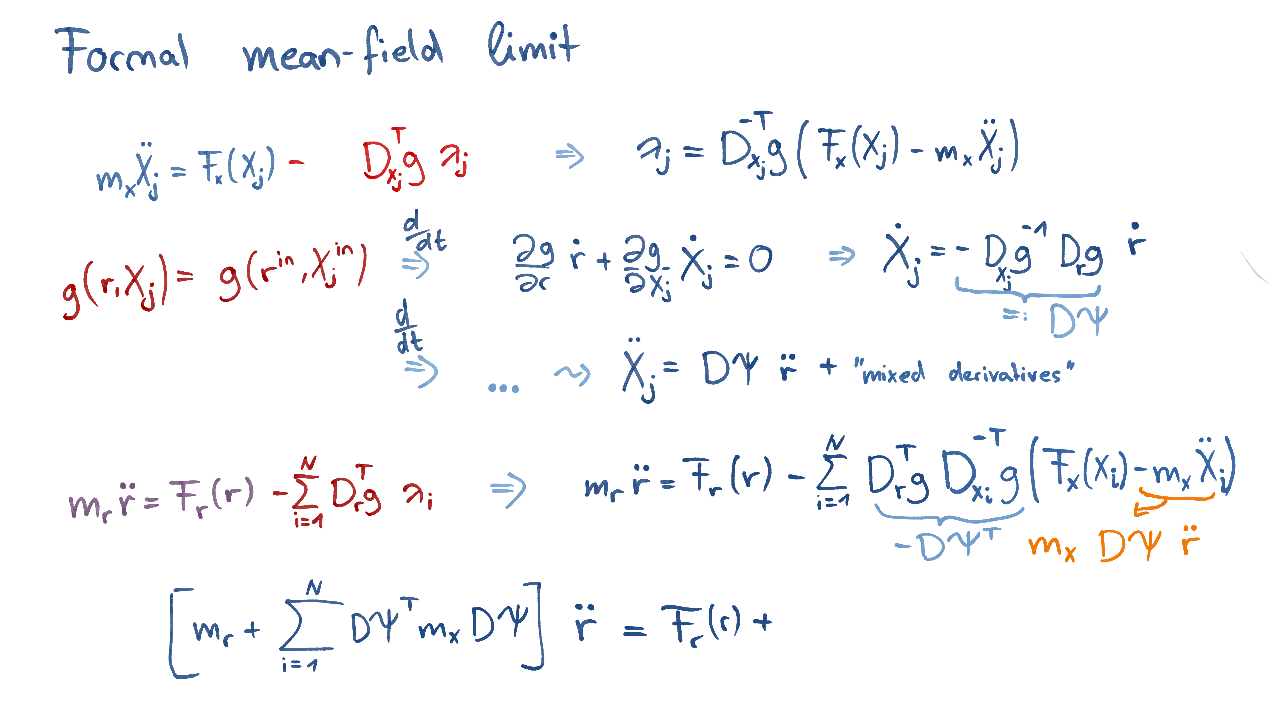 Formal mean-field limit
mₓẌⱼ = Fₓ(Xⱼ) − D_{xⱼ}^T g λⱼ ⇒ λⱼ = D_{xⱼ}^{-T} g (Fₓ(Xⱼ) − mₓ Ẍⱼ)
g(r, Xⱼ) = g(r^{in}, Xⱼ^{in}) d/dt ⇒ ∂g/∂r ṙ + ∂g/∂Xⱼ Ẋⱼ = 0 ⇒ Ẋⱼ = − D_{xⱼ} g^{-1} D_r g ṙ
=: DΨ
d/dt ⇒ ... ⇝ Ẍⱼ = DΨ r̈ + "mixed derivatives"
m_r r̈ = F_r(r) − ∑_{i=1}^{N} D_r^T g λᵢ ⇒ m_r r̈ = F_r(r) − ∑_{i=1}^{N} D_r^T g D_{xᵢ}^{-T} g (Fₓ(Xᵢ) − mₓ Ẍᵢ)
−DΨ^T mₓ DΨ r̈
[m_r + ∑_{i=1}^{N} DΨ^T mₓ DΨ] r̈ = F_r(r) +